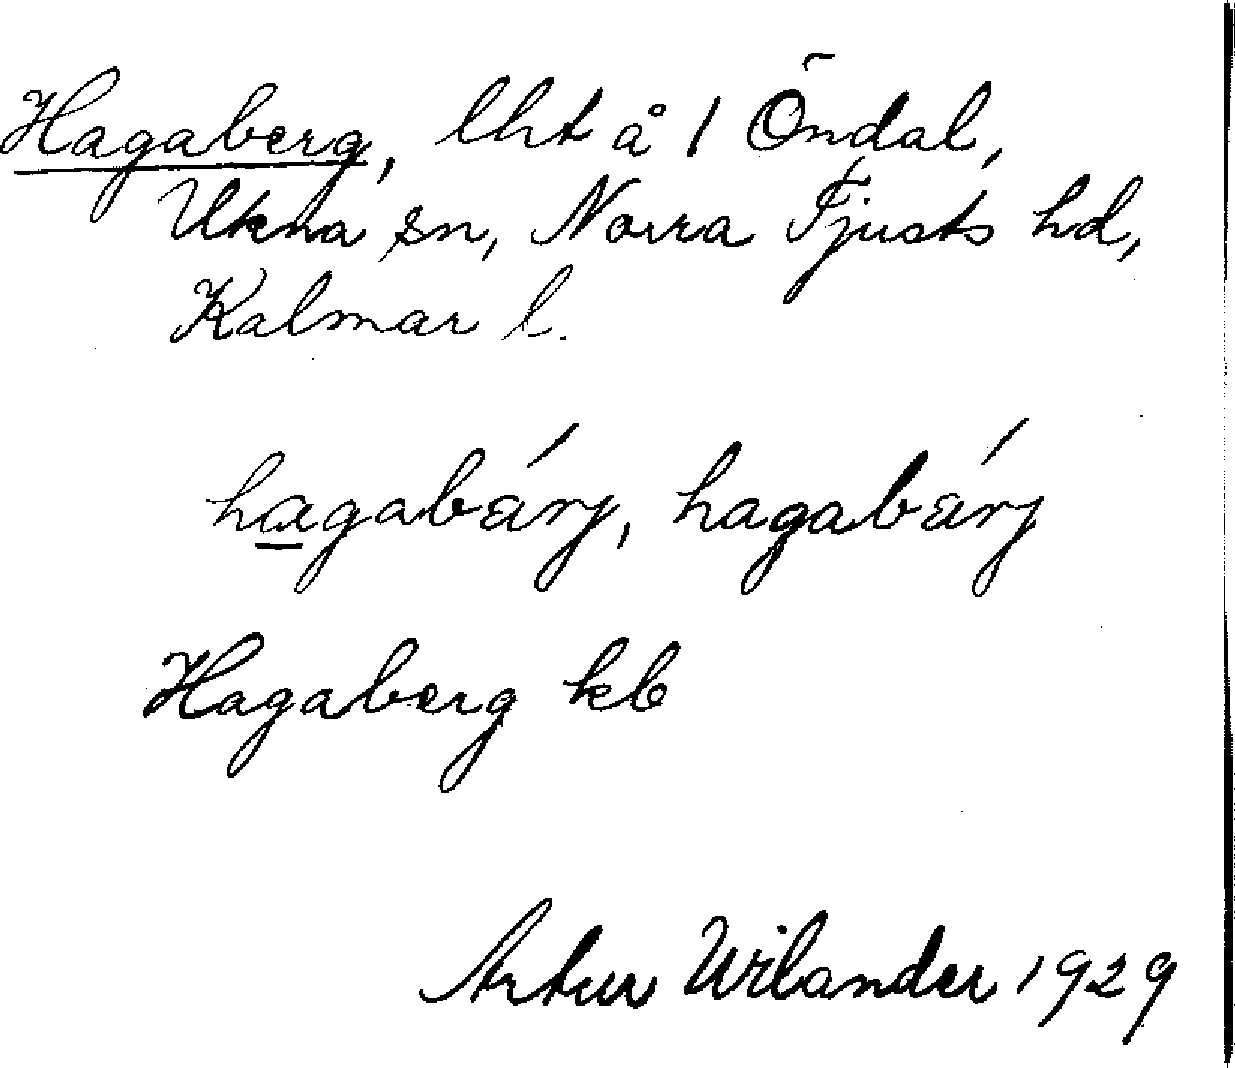 Hagaberg, lht å 1 Öndal,
Ukna sn, Norra Tjusts hd,
Kalmar l.
hagabärj, hagabärj
Hagaberg kb
Artur Wilander 1929